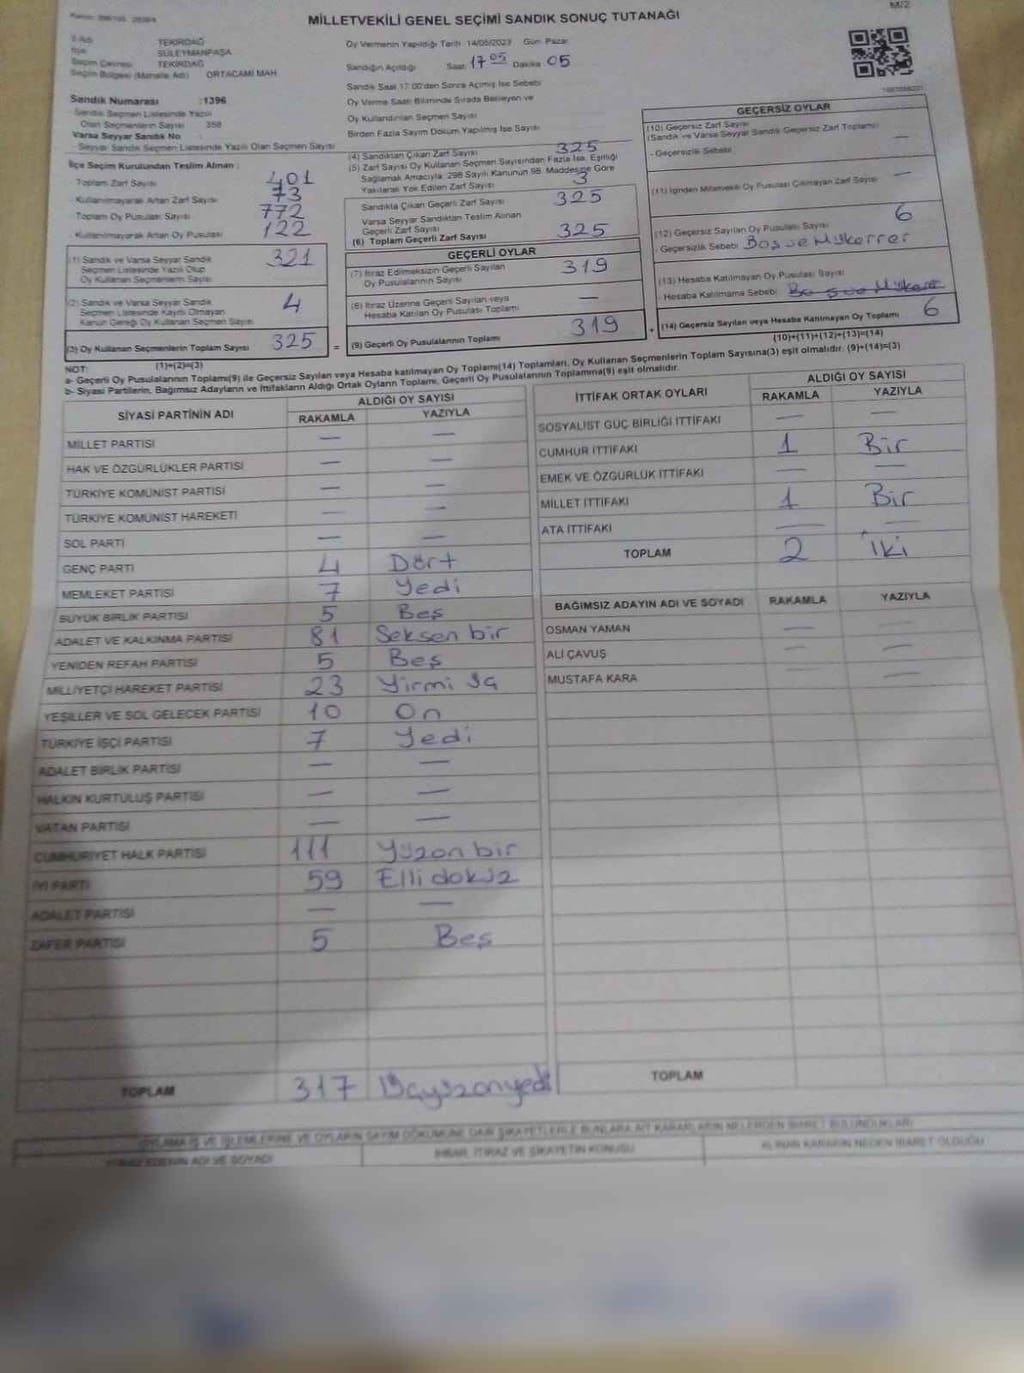 M/2
MİLLETVEKİLİ GENEL SEÇİMİ SANDIK SONUÇ TUTANAĞI
İl Adı TEKİRDAĞ
İlçe SÜLEYMANPAŞA
Seçim Çevresi TEKİRDAĞ
Seçim Bölgesi (Mahalle Adı) ORTACAMİ MAH
Sandık Numarası :1396
Sandık Seçmen Listesinde Yazılı
Olan Seçmenlerin Sayısı 358
Varsa Seyyar Sandık No :
Seyyar Sandık Seçmen Listesinde Yazılı Olan Seçmen Sayısı
Oy Vermenin Yapıldığı Tarih 14/05/2023 Gün Pazar
Sandığın Açıldığı Saat 17 05 Dakika 05
Sandık Saat 17:00'den Sonra Açılmış İse Sebebi
Oy Verme Saati Bitiminde Sırada Bekleyen ve
Oy Kullandırılan Seçmen Sayısı
Birden Fazla Sayım Döküm Yapılmış İse Sayısı
İlçe Seçim Kurulundan Teslim Alınan :
- Toplam Zarf Sayısı 401
- Kullanılmayarak Artan Zarf Sayısı 73
- Toplam Oy Pusulası Sayısı 772
- Kullanılmayarak Artan Oy Pusulası 122
(1) Sandık ve Varsa Seyyar Sandık
Seçmen Listesinde Yazılı Olup
Oy Kullanan Seçmenlerin Sayısı 321
(2) Sandık ve Varsa Seyyar Sandık
Seçmen Listesinde Kayıtlı Olmayan
Kanun Gereği Oy Kullanan Seçmen Sayısı 4
(3) Oy Kullanan Seçmenlerin Toplam Sayısı 325 =
(1)+(2)=(3)
(4) Sandıktan Çıkan Zarf Sayısı 325
(5) Zarf Sayısı Oy Kullanan Seçmen Sayısından Fazla İse, Eşitliği
Sağlamak Amacıyla, 298 Sayılı Kanunun 98. Maddesine Göre
Yakılarak Yok Edilen Zarf Sayısı 3
Sandıkta Çıkan Geçerli Zarf Sayısı 325
Varsa Seyyar Sandıktan Teslim Alınan
Geçerli Zarf Sayısı
(6) Toplam Geçerli Zarf Sayısı 325
GEÇERLİ OYLAR
(7) İtiraz Edilmeksizin Geçerli Sayılan
Oy Pusulalarının Sayısı 319
(8) İtiraz Üzerine Geçerli Sayılan veya
Hesaba Katılan Oy Pusulası Toplamı —
(9) Geçerli Oy Pusulalarının Toplamı 319 +
GEÇERSİZ OYLAR
(10) Geçersiz Zarf Sayısı
(Sandık ve Varsa Seyyar Sandık Geçersiz Zarf Toplamı) —
- Geçersizlik Sebebi
(11) İçinden Milletvekili Oy Pusulası Çıkmayan Zarf Sayısı —
(12) Geçersiz Sayılan Oy Pusulası Sayısı 6
- Geçersizlik Sebebi Boş ve Mükerrer
(13) Hesaba Katılmayan Oy Pusulası Sayısı
- Hesaba Katılmama Sebebi
(14) Geçersiz Sayılan veya Hesaba Katılmayan Oy Toplamı 6
(10)+(11)+(12)+(13)=(14)
NOT:
a- Geçerli Oy Pusulalarının Toplamı(9) ile Geçersiz Sayılan veya Hesaba katılmayan Oy Toplamı(14) Toplamları, Oy Kullanan Seçmenlerin Toplam Sayısına(3) eşit olmalıdır. (9)+(14)=(3)
b- Siyasi Partilerin, Bağımsız Adayların ve İttifakların Aldığı Ortak Oyların Toplamı, Geçerli Oy Pusulalarının Toplamına(9) eşit olmalıdır.
SİYASİ PARTİNİN ADI
ALDIĞI OY SAYISI
RAKAMLA YAZIYLA
MİLLET PARTİSİ — —
HAK VE ÖZGÜRLÜKLER PARTİSİ — —
TÜRKİYE KOMÜNİST PARTİSİ — —
TÜRKİYE KOMÜNİST HAREKETİ — —
SOL PARTİ — —
GENÇ PARTİ 4 Dört
MEMLEKET PARTİSİ 7 Yedi
BÜYÜK BİRLİK PARTİSİ 5 Beş
ADALET VE KALKINMA PARTİSİ 81 Seksen bir
YENİDEN REFAH PARTİSİ 5 Beş
MİLLİYETÇİ HAREKET PARTİSİ 23 Yirmi üç
YEŞİLLER VE SOL GELECEK PARTİSİ 10 On
TÜRKİYE İŞÇİ PARTİSİ 7 Yedi
ADALET BİRLİK PARTİSİ — —
HALKIN KURTULUŞ PARTİSİ — —
VATAN PARTİSİ — —
CUMHURİYET HALK PARTİSİ 111 Yüzon bir
İYİ PARTİ 59 Elli dokuz
ADALET PARTİSİ — —
ZAFER PARTİSİ 5 Beş
TOPLAM 317 Üçyüzonyedi
İTTİFAK ORTAK OYLARI
ALDIĞI OY SAYISI
RAKAMLA YAZIYLA
SOSYALİST GÜÇ BİRLİĞİ İTTİFAKI — —
CUMHUR İTTİFAKI 1 Bir
EMEK VE ÖZGÜRLÜK İTTİFAKI — —
MİLLET İTTİFAKI 1 Bir
ATA İTTİFAKI — —
TOPLAM 2 İki
BAĞIMSIZ ADAYIN ADI VE SOYADI RAKAMLA YAZIYLA
OSMAN YAMAN — —
ALİ ÇAVUŞ — —
MUSTAFA KARA —
TOPLAM
OYLAMA İŞ VE İŞLEMLERİNE VE OYLARIN SAYIM DÖKÜMÜNE DAİR ŞİKAYETLERLE BUNLARA AİT KARARLARIN NELERDEN İBARET BULUNDUKLARI
İTİRAZ EDENİN ADI VE SOYADI
İHBAR, İTİRAZ VE ŞİKAYETİN KONUSU
ALINAN KARARIN NEDEN İBARET OLDUĞU